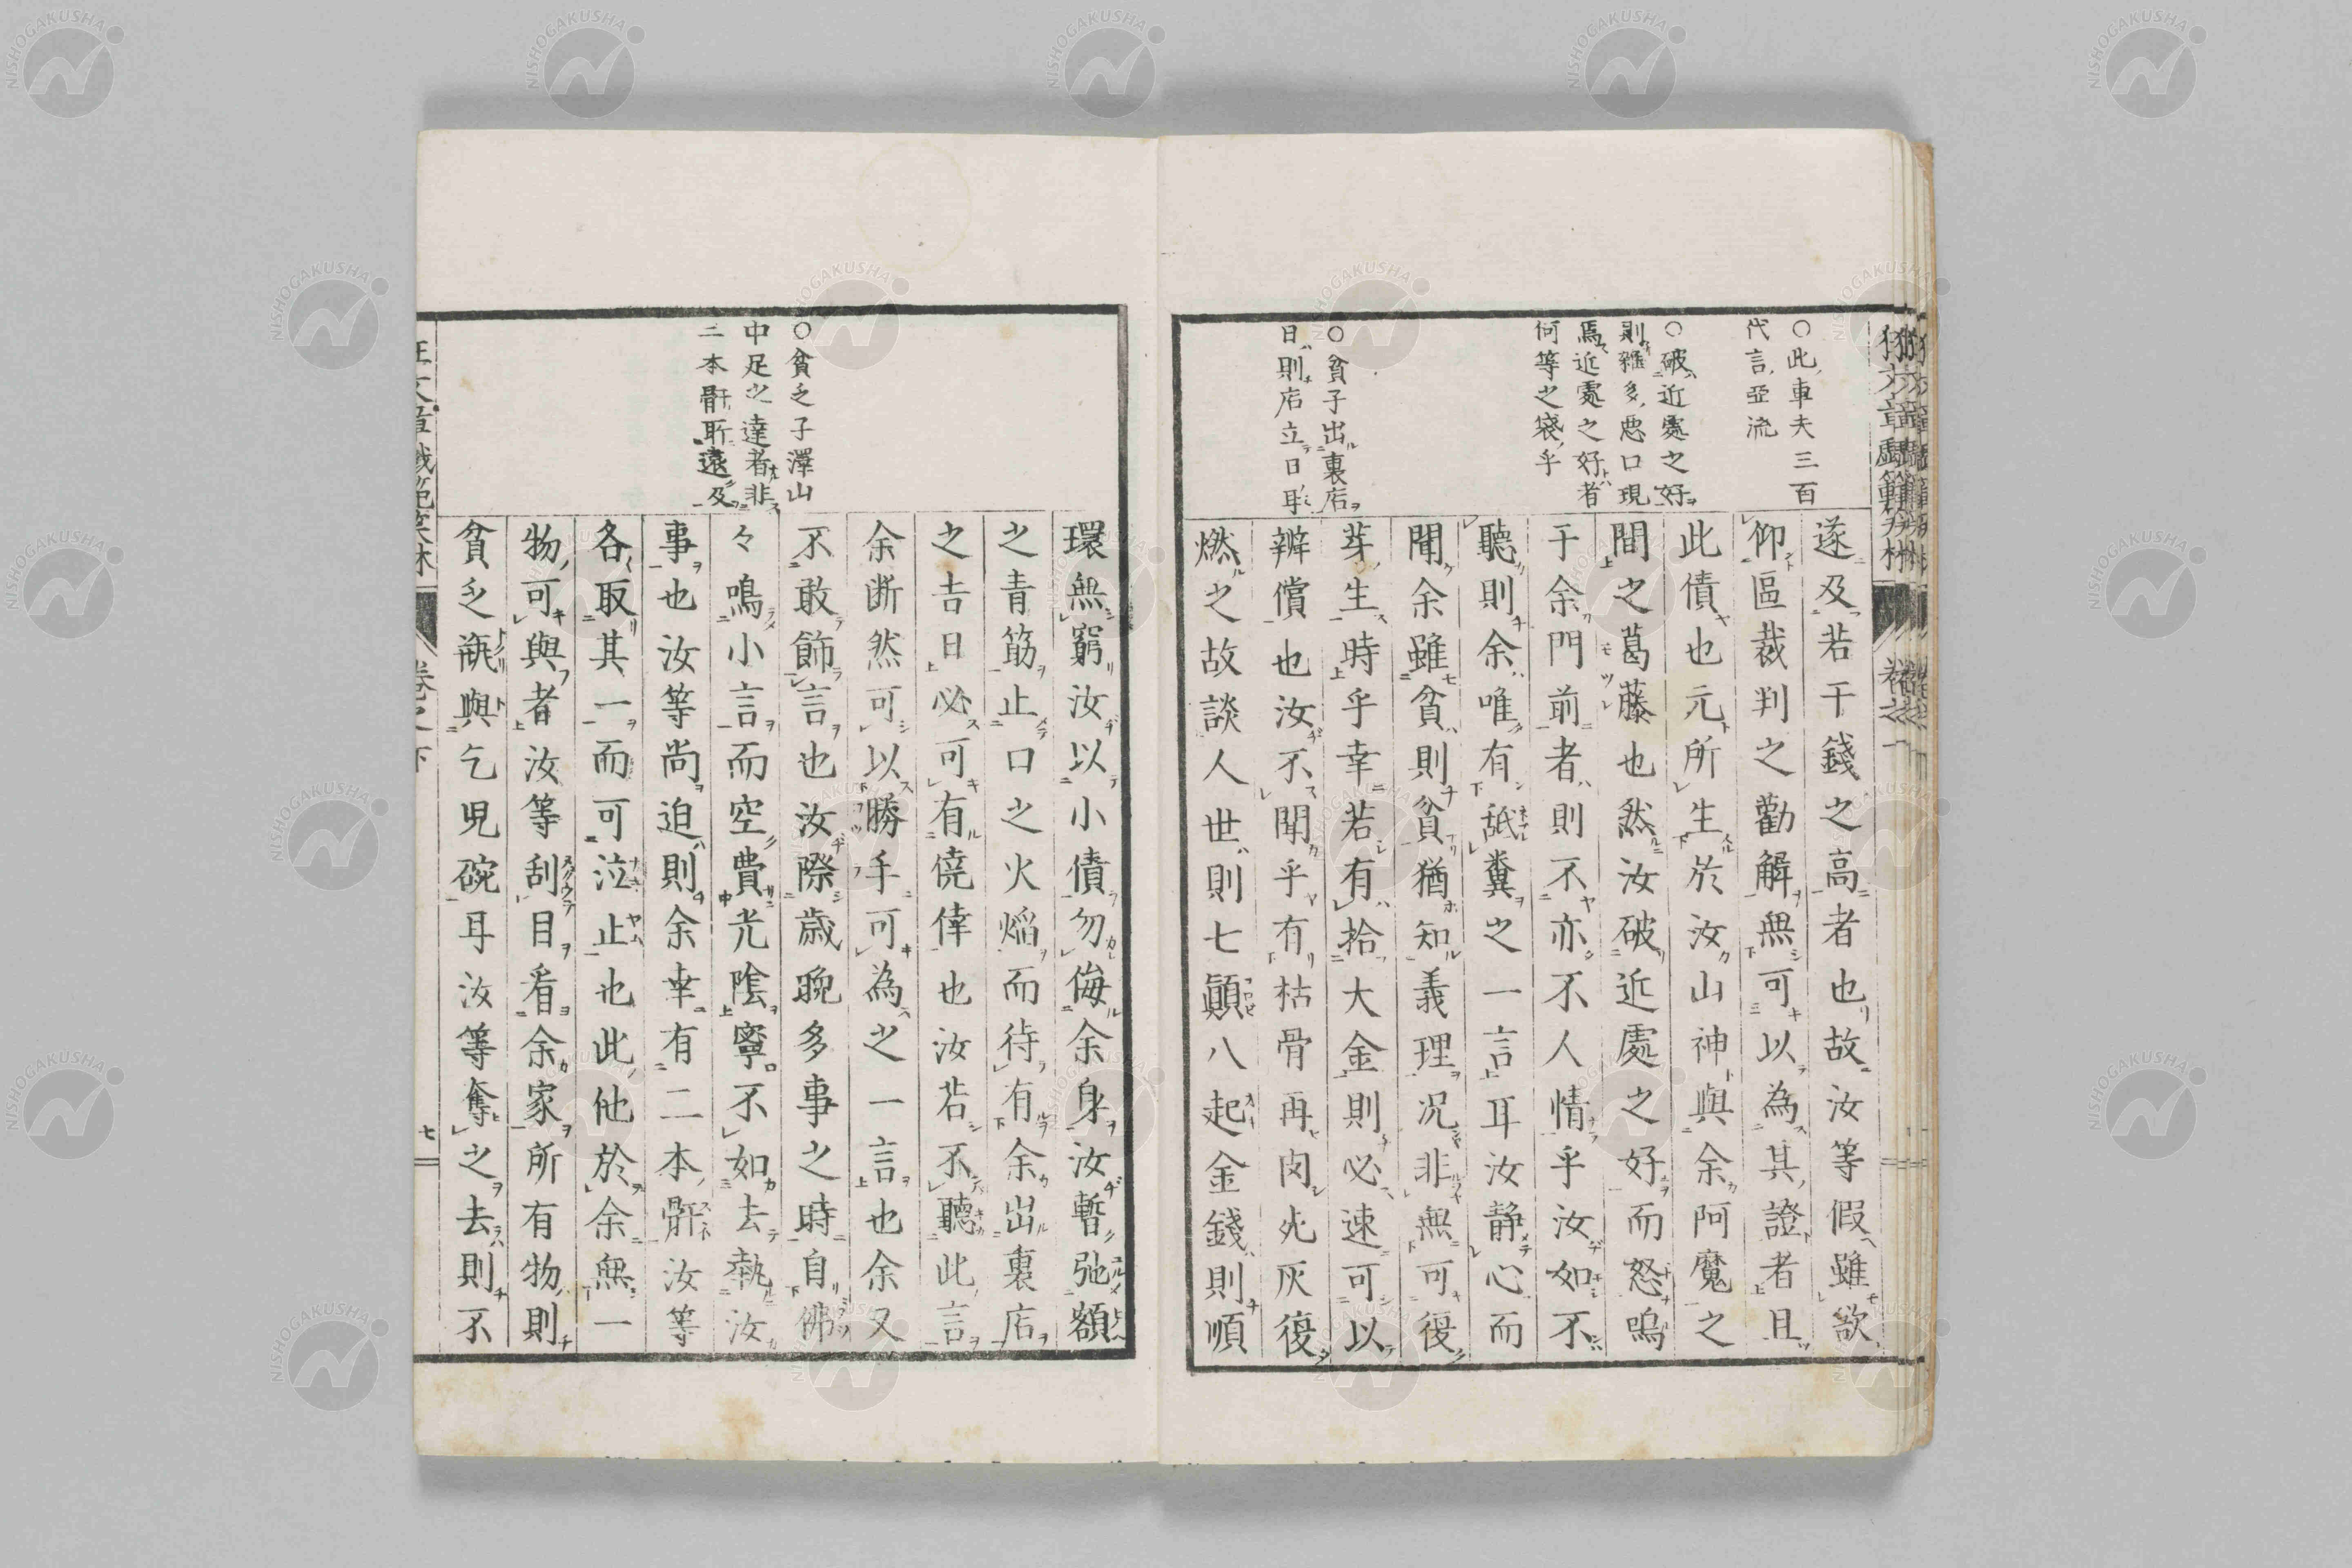 ○此車夫三百
代言亞流
○破近處之好
則雜多悪口現
焉近處之好者
何等之袋乎
○貧子出裏店
日則店立日耳
遂及若干錢之高者也故汝等假雖欲
仰區裁判之勸解無可以為其證者且
此債也元所生於汝山神與余阿魔之
間之葛藤也然汝破近處之好而怒鳴
于余門前者則不亦不人情乎汝如不
聽則余唯有舐糞之一言耳汝静心而
聞余雖貧則貧猶知義理况非無可復
芽生時乎幸若有拾大金則必速可以
辨償也汝不聞乎有枯骨再肉死灰復
燃之故談人世則七顚八起金錢則順
環無窮汝以小債勿侮余身汝暫弛額
之青筋止口之火焰而待有余出裏店
之吉日必可有僥倖也汝若不聽此言
余断然可以勝手可為之一言也余又
不敢飾言也汝際歳晩多事之時自佛
々鳴小言而空費光陰寧不如去執汝
事也汝等尚迫則余幸有二本骭汝等
各取其一而可泣止也此他於余無一
物可與者汝等刮目看余家所有物則
貧乏瓶與乞児碗耳汝等奪之去則不
○貧乏子澤山
中足之達者非
二本骭耶遠及
卷之下
七